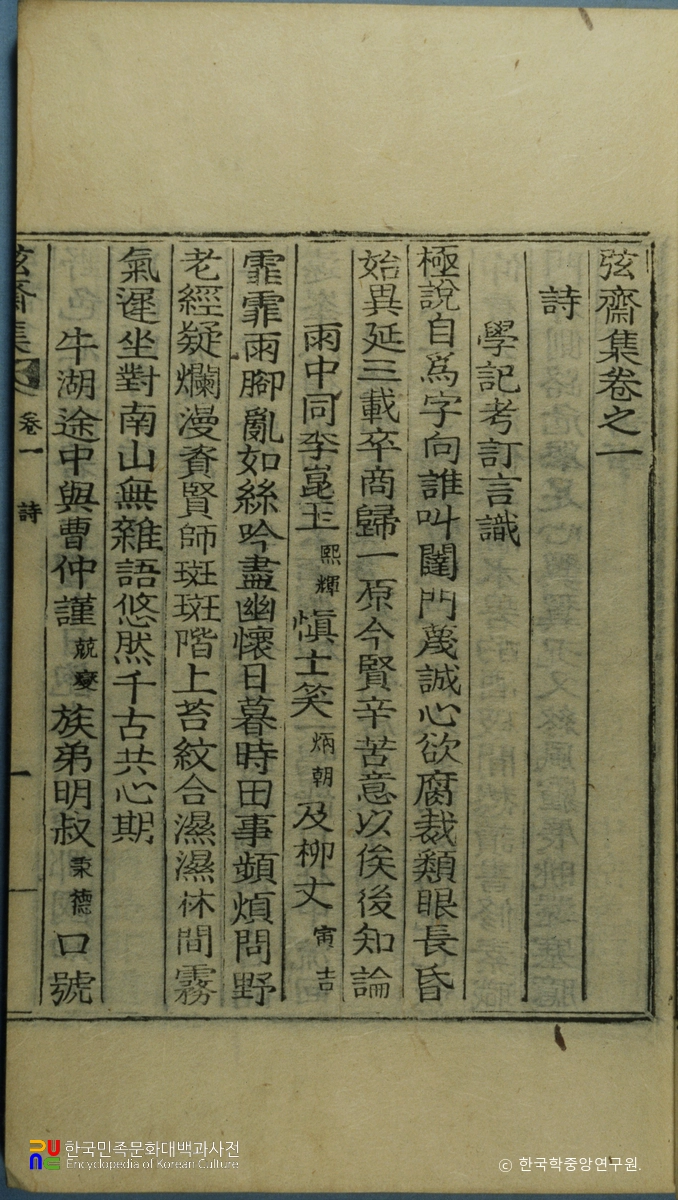 弦齋集卷之一
詩
學記考訂言識
極說自爲字向誰叫闔門蔑誠心欲腐裁類眼長昏
始異延三載卒商歸一原今賢辛苦意以俟後知論
雨中同李崑玉熙輝愼士笑炳朝及柳丈寅吉
霏霏雨腳亂如絲吟盡幽懷日暮時田事頻煩問野
老經疑爛漫資賢師斑斑階上苔紋合濕濕牀間霧
氣遲坐對南山無雜語悠然千古共心期
牛湖途中與曹仲謹兢燮族弟明叔秉德口號
弦齋集 卷一 詩 一
한국민족문화대백과사전
Encyclopedia of Korean Culture
© 한국학중앙연구원.